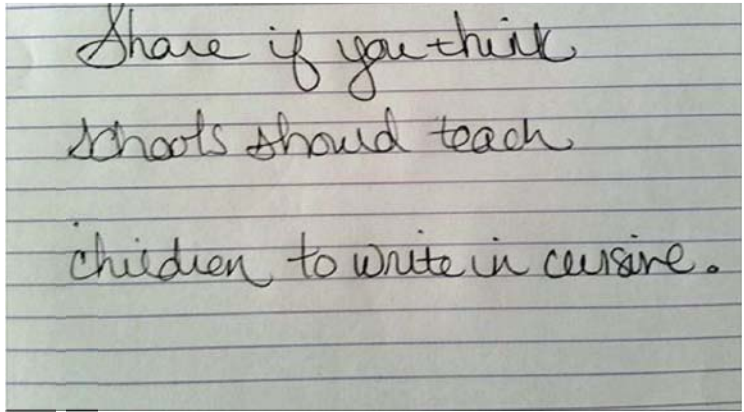 Share if you think
schools should teach
children to write in cursive.